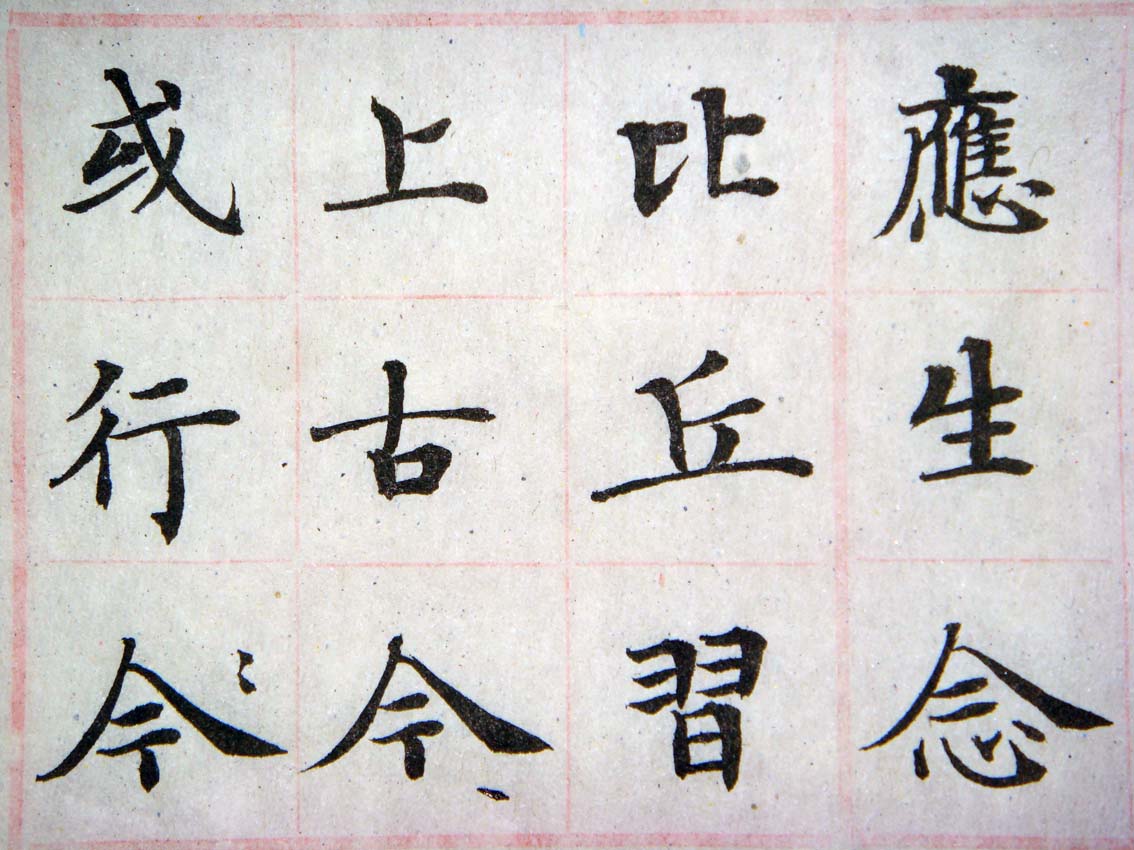 應生念
比丘習
上古今
或行今